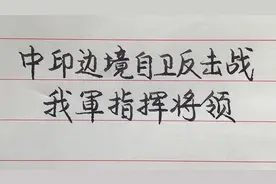 中印边境自卫反击战
我軍指挥将领